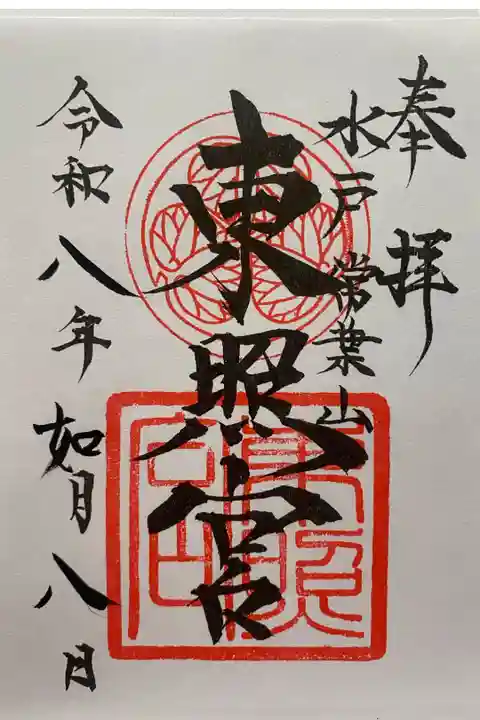 奉拝
水戸 常葉山
東照宮
令和八年 如月 八日